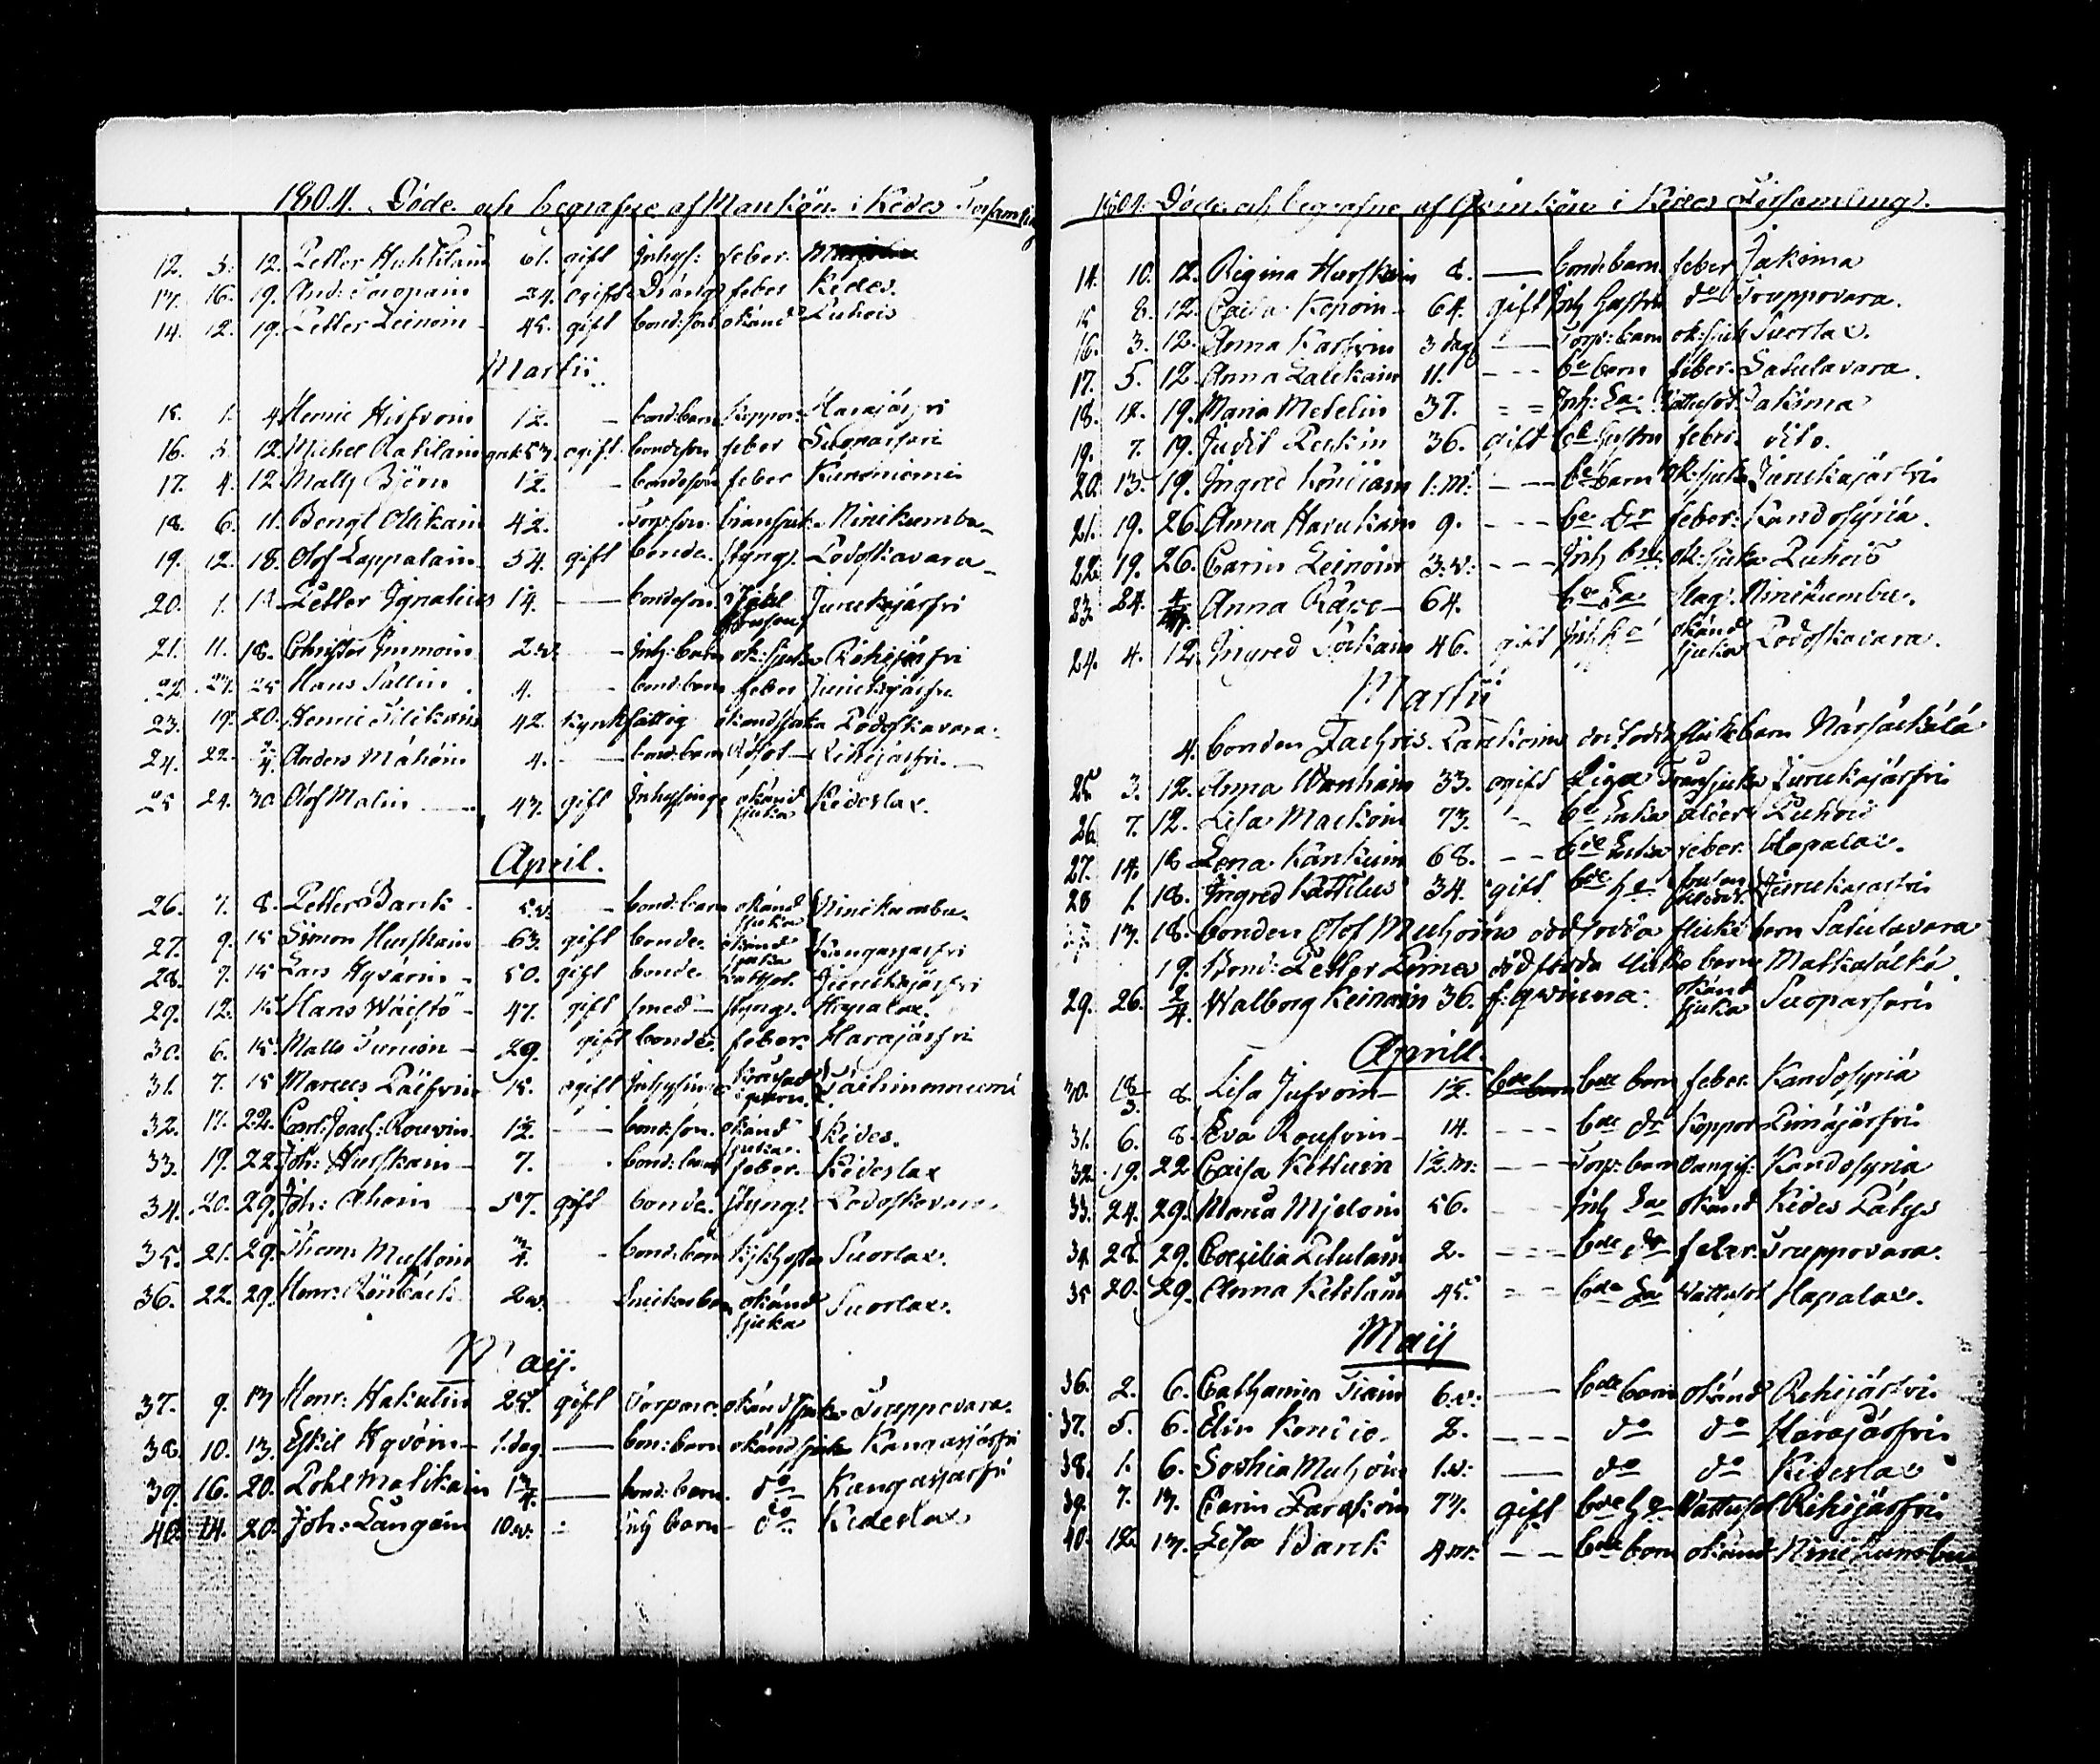 1804. Döde och begrafne af Mankön i Kides Församling
12. 5. 12. Petter Huhtilain 61. gift Inhys: feber.
13. 16. 19. And: Saropain 24. ogift Dräng feber Kides.
14. 12. 19. Petter Leinoin 45. gift bond:son okänd Puhois
Martii
15. 1. 4 Henric Hirfvoin 1/2. – bond:barn koppor Harajärfvi
16. 5. 12. Michel Ratilain ogift bondeson feber Suoparsari
17. 4. 12 Matts Björn 1/2. – bondeson feber Kuronniemi
18. 6. 11. Bengt Ollikain 42. Torp:son bransjuk Niinikumbu
19. 12. 18. Olof Lappalain 54. gift bonde. styng. Podoskavara
20. 1. 18. Petter Ignatius 14. — bondeson Juurikajärfvi
21. 11. 18. Christer Immoin 2 v. — Inh: barn ok: sjuka Rihijärfvi
22. 23. 25 Hans Pallin 4. — bond:barn feber Juurikajärfvi
23. 19. 20. Henric Silikain 42. fattig okändsjuka Podoskavara
24. 22. 2/4. Anders Mähöin 4. — bond:barn Rödsot Rihijärfvi
25 24. 30. Olof Malin 43. gift Inhysinge okänd sjuka Kideslax.
April.
26. 7. 8. Petter Barck 5.v. — bond:barn okänd sjuka Niinikumbu
27. 9. 15 Simon Hurskain 63. gift bonde. okänd sjuka Kangasjärfvi
28. 7. 15 Lars Hyvärin 50. gift bonde Wattsot. Juurikajärfvi
29. 12. 15. Hans Wäistö 47. gift smed styng. Hapalax.
30. 6. 15. Matts Turuin 29. gift bonde. feber. Harajärfvi
31. 7. 15 Marcus Pälfvin 15. ogift Inhysing
32. 17. 22. Carl Joach: Rouvin. 1/2. — bond:son. okänd sjuka. Kides.
33. 17. 22. Joh: Hurskain 7. bond:barn feber. Kideslax
34. 20. 29. Joh: Ahoin 57. gift bonde. styng. Podoskavara
35. 21. 29. Thom: Mustoin 3/4. – bond:barn kikhosta Puorlax.
36. 22. 29. Henr: Rönbäck 2 v. barn okänd sjuka Puorlax.
Maij.
37. 9. 13 Henr: Hakulin 25. gift Torpare. okänd sjuka Truppovara.
38. 10. 13. Eskil Hyvöin 1.dag — bon: barn okänd sjuka Kangasjärfvi
39. 16. 20. Pohl Malikain 1 3/4. — bond: barn. do Kangasjärfvi
40. 14. 20. Joh: Langain 10.v: Inh barn – do Kideslax
1804. Döde och begrafne af Qvinkön i Kides Församling.
14. 10. 12. Regina Hurskain 8. — bondebarn feber Jakima
15 8. 12. Caisa Kopoin 64. gift Inh hustru do Truppovara.
16. 3. 12. Anna Karhvin 3 dag — Torp: barn ok: sjuk Puorlax.
17. 5. 12. Anna Laukain 11. --- bde barn feber. Satulavara.
18. 12. 19. Maria Metelin 37. = = Inh: Ea Wattusot. Jakima
19. 7. 19. Judit Peckin 36. gift bde hustru feber. dito.
20. 13. 19. Ingred Kontiain 1. m: --- bde barn ok: sjuk Juurikajärfvi
21. 19. 26. Anna Harukain 9. --- bde dr feber. Kandosyriä.
22. 19. 26. Carin Leinoin 3.v: --- Inh brn ok: sjuka Puhois
23. 24. Anna Räwe 64. bde Ea slag. Niinikumbu.
24. 4. 12. Ingred 46. gift Inh h okänd sjuka Podoskavara.
Martii
4. bonden Zachris. dödfödde flickebarn Närsäckälä
25. 3. 12. Anna Wanhain 33. ogift Piga Juurikajärfvi
26 7. 12. Lisa Mackoin 73. bde Enka ålder Puhois
27. 14. 18 Lena Kankuin 68. -- bde Enka feber. Hapalax.
28 1. 18. Ingred Kattilus 34. gift bde h Juurikajärfvi
13. 18. bonden Olof Muhoins dödfödda flicke barn Satulavara
19. Bond: Petter dödfödda flicke barn Matkasälkä
29. 26. 2/4 Walborg Keinäin 36. f: qwinna. okänd sjuka Suoparsari
Aprill.
30. 18/3. 8. Lisa Jufvoin 1/2. bde barn feber. Kandosyriä
31. 6. 8. Eva Roufvin 14. --- bde dr koppor Piimäjärfvi
32. 19. 22 Caisa Kettuin 1/2.m: --- Torp: barn oangif: Kandosyriä
33. 24. 29. Maria Mjeloin 56. --- Inh Ea okänd Kides Pätys
34. 28. 29. Cecilia 2. --- bde dr feber. Truppovara.
35 20. 29. Anna 45. = = bde Ea Wattusot Hapalax.
Maij
36. 2. 6. Catharina Tiain 6.v: — bde barn okänd Rihijärfvi
37. 5. 6. Elin Kontio. 2. --- do do Harajärfvi
38. 1. 6. Sophia Muhoin 1.v: — do do Kideslax
39. 7. 13. Carin 73. gift bde h Wattusot Rihijärfvi
40. 12. 13. Lisa Barck 4 m. -- bde barn okänd Niinikumbu